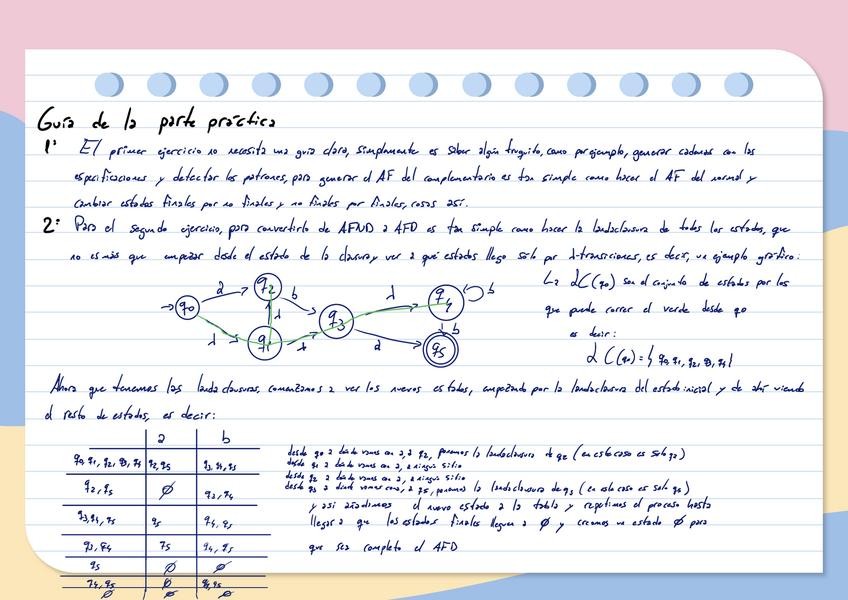 Guía de la parte práctica
1: El primer ejercicio no necesita una guía clara, simplemente es saber algún truquito, como por ejemplo, generar cadenas con las
especificaciones y detectar los patrones, para generar el AF del complementario es tan simple como hacer el AF del normal y
cambiar estados finales por no finales y no finales por finales, cosas así.
2: Para el segundo ejercicio, para convertirlo de AFND a AFD es tan simple como hacer la landaclausura de todos los estados, que
no es más que empezar desde el estado de la clausura y ver a qué estados llego solo por λ-transiciones, es decir, un ejemplo gráfico:
q0 a q2 b q4 b
λ q1 λ λ q3 λ a b q5
La λC(q0) son el conjunto de estados por los
que puede correr el verde desde q0
es decir:
λC(q0)={q0,q1,q2,q3,q4}
Ahora que tenemos las landaclausuras, comenzamos a ver los nuevos estados, empezando por la landaclausura del estado inicial y de ahí viendo
el resto de estados, es decir:
a b
q0,q1,q2,q3,q4 q2,q5 q3,q4,q5
q2,q5 ∅ q3,q4
q3,q4,q5 q5 q4,q5
q3,q4 q5 q4,q5
q5 ∅ ∅
q4,q5 ∅ q4,q5
∅ ∅ ∅
desde q0 a dónde vamos con a, a q2, ponemos la landaclausura de q2 (en este caso es solo q2)
desde q1 a dónde vamos con a, a ningún sitio
desde q2 a dónde vamos con a, a ningún sitio
desde q3 a dónde vamos con a, a q5, ponemos la landaclausura de q5 (en este caso es solo q5)
y así añadimos el nuevo estado a la tabla y repetimos el proceso hasta
llegar a que los estados finales lleguen a ∅ y creamos un estado ∅ para
que sea completo el AFD